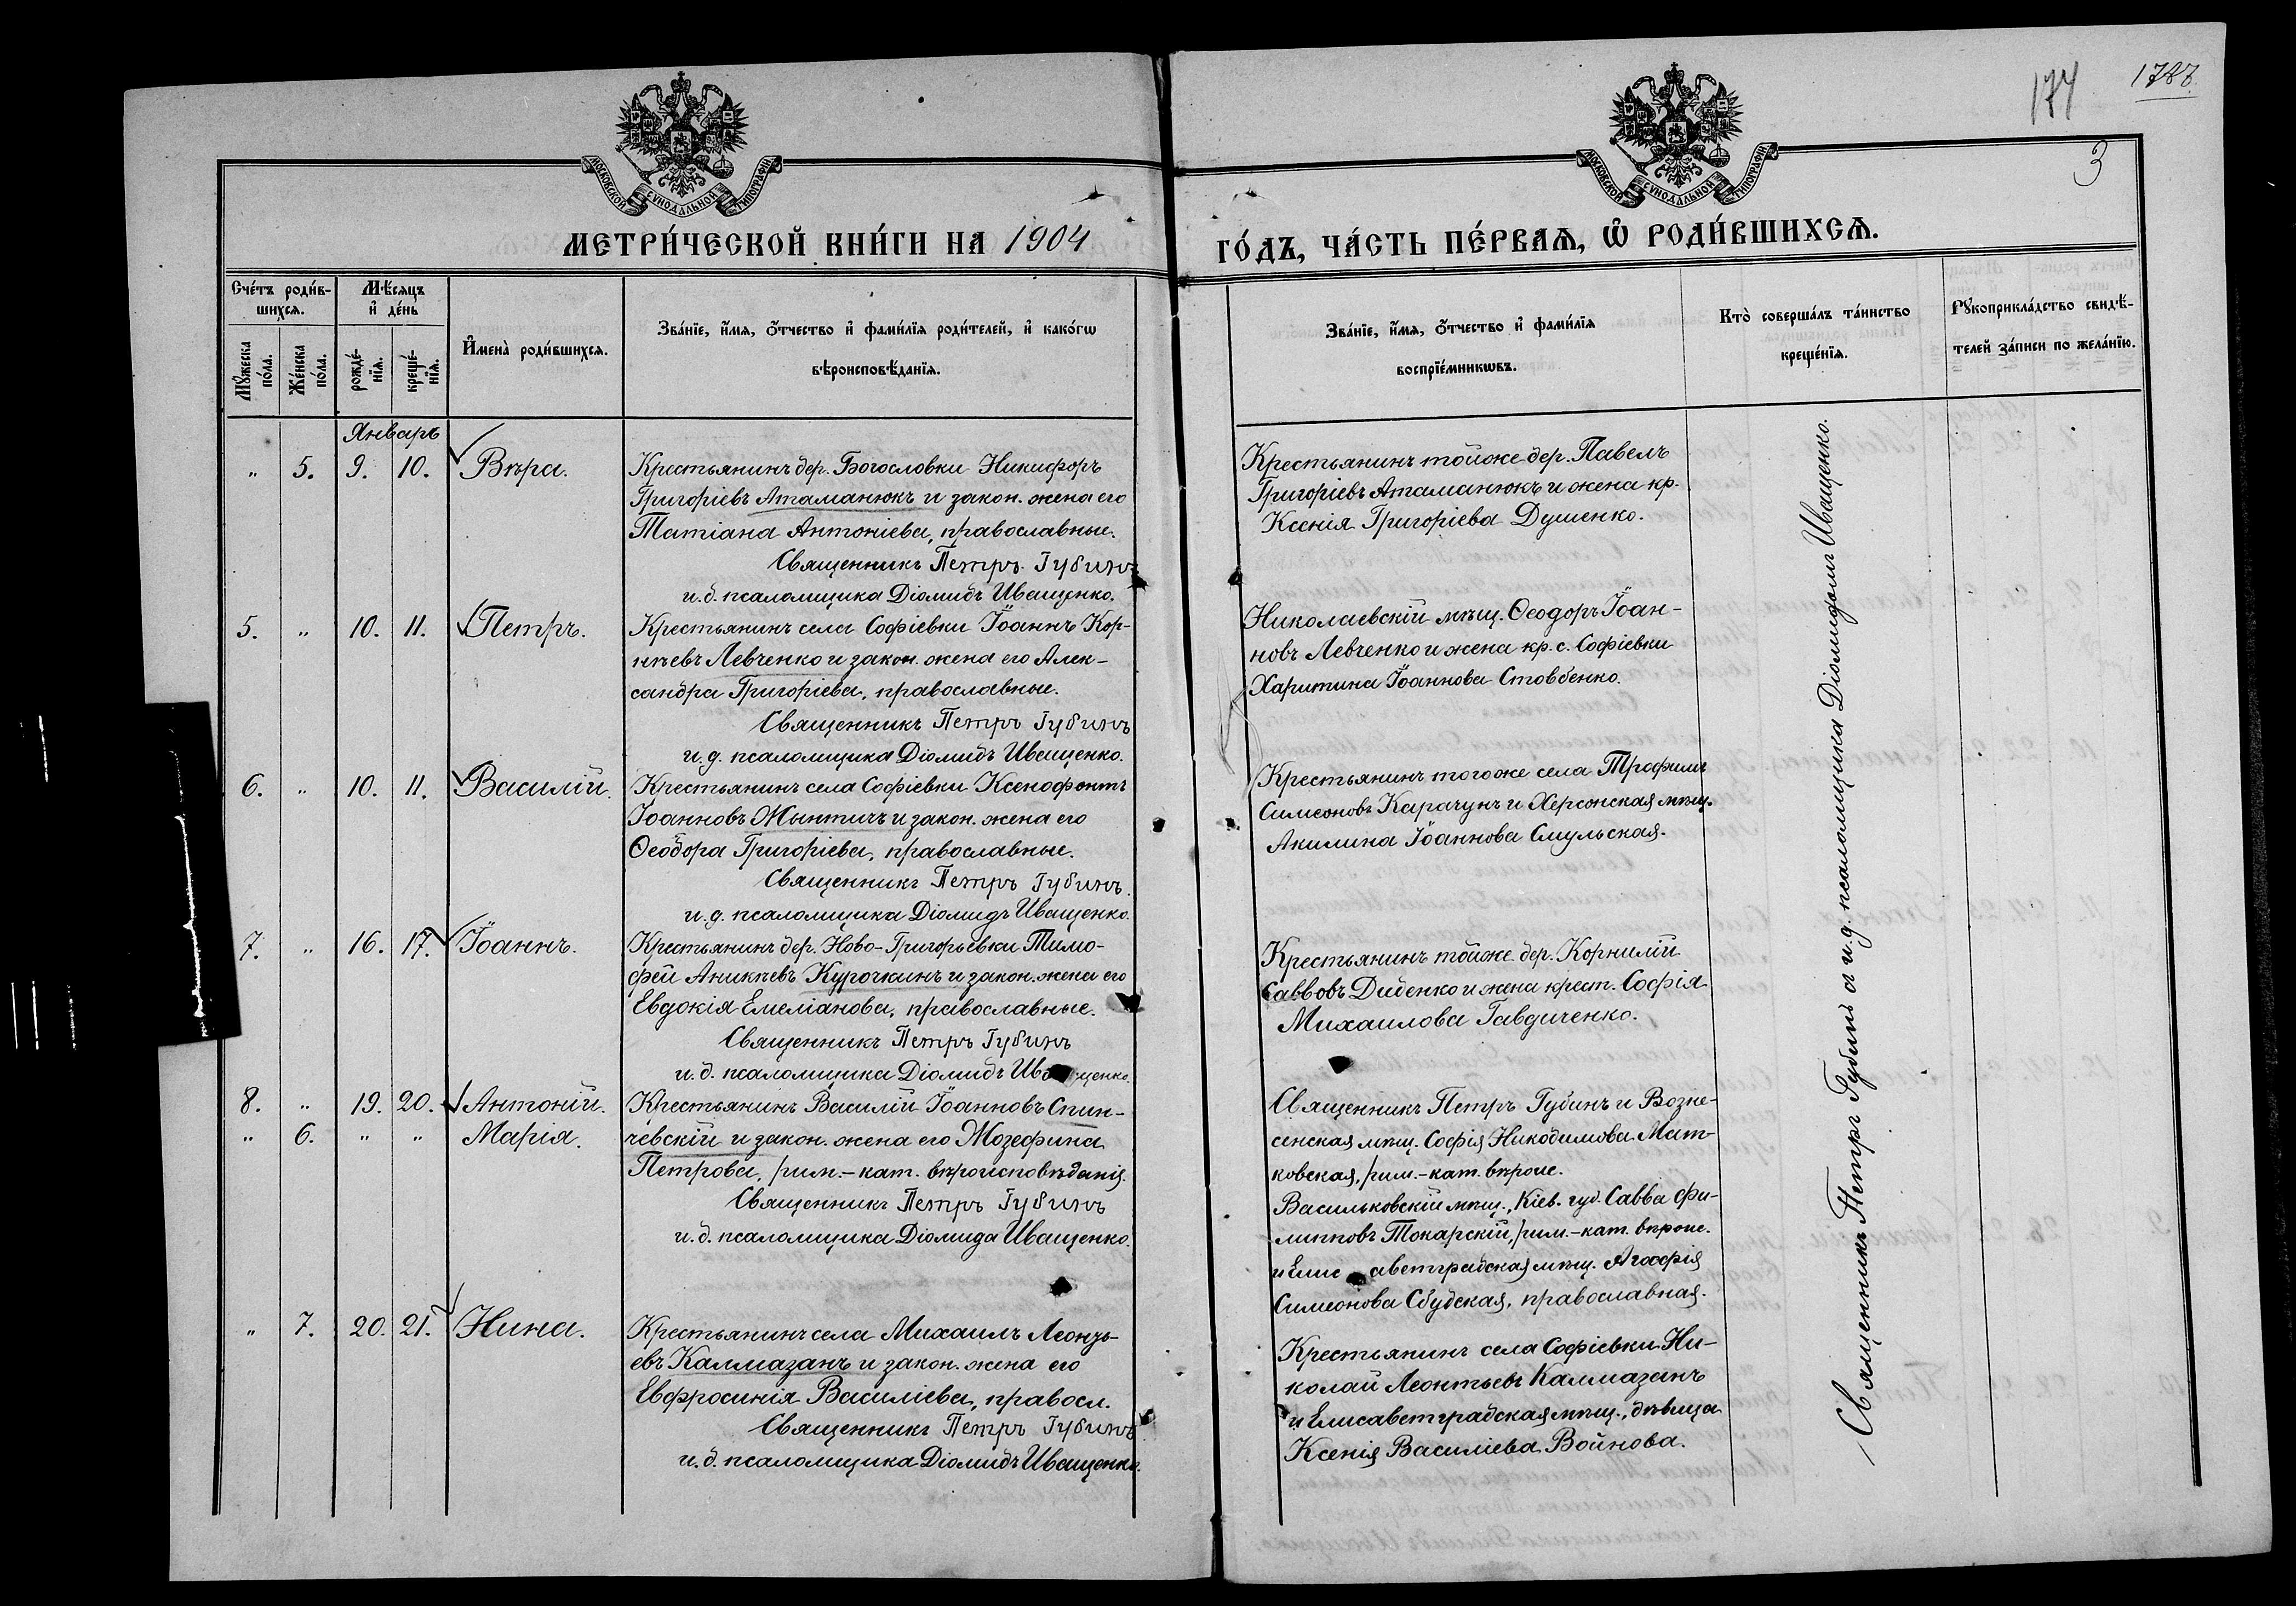 174
1787.
3
МОСКОВСКОЙ СѴНОДАЛЬНОЙ ТИПОГРАФІИ
МОСКОВСКОЙ СѴНОДАЛЬНОЙ ТИПОГРАФІИ
МЕТРИ́ЧЕСКОЙ КНИ́ГИ НА 1904
ГО́ДЪ, ЧА́СТЬ ПЕ́РВАѦ, Ѡ҆ РОДИ́ВШИХСѦ.
Сче́тъ роди́в-
шихсѧ.
Мѣ́сѧцъ
и҆ де́нь
Мꙋ́жеска
по́ла.
Же́нска
по́ла.
рожде́-
нїѧ.
креще́-
нїѧ.
И҆мена̀ роди́вшихсѧ.
Зва́нїе, и҆́мѧ, ѻ҆́тчество и҆ фами́лїѧ роди́телей, и҆ како́гѡ
вѣроисповѣ́данїѧ.
Зва́нїе, и҆́мѧ, ѻ҆́тчество и҆ фами́лїѧ
воспрїе́мникѡвъ.
Кто̀ соверша́лъ та́инство
креще́нїѧ.
Рꙋкоприкла́дство свидѣ́-
телей за́писи по жела́нїю.
Январь
" 5. 9. 10. Вѣра.
Крестьянинъ дер. Богословки Никифоръ
Григоріевъ Атаманюкъ и закон. жена его
Татіана Антоніева, православные.
Священникъ Петръ Губинъ
и. д. псаломщика Діомидъ Иващенко.
Крестьянинъ тойже дер. Павелъ
Григоріевъ Атаманюкъ и жена кр.
Ксенія Григоріева Душенко.
5. " 10. 11. Петръ.
Крестьянинъ села Софіевки Іоаннъ Кор-
нѣевъ Левченко и закон. жена его Алек-
сандра Григоріева, православные.
Священникъ Петръ Губинъ
и. д. псаломщика Діомидъ Иващенко.
Николаевскій мѣщ. Ѳеодоръ Іоан-
новъ Левченко и жена кр. с. Софіевки
Харитина Іоаннова Стовбенко.
6. " 10. 11. Василій.
Крестьянинъ села Софіевки Ксенофонтъ
Іоанновъ Мынтичъ и закон. жена его
Ѳеодора Григоріева, православные.
Священникъ Петръ Губинъ.
и. д. псаломщика Діомидъ Иващенко.
Крестьянинъ тогоже села Трофимъ
Симеоновъ Карачунъ и Херсонская мѣщ.
Акилина Іоаннова Смульская.
7. " 16. 17. Іоаннъ.
Крестьянинъ дер. Ново-Григорьевки Тимо-
фей Аникѣевъ Курочкинъ и закон. жена его
Евдокія Емеліанова, православные.
Священникъ Петръ Губинъ
и. д. псаломщика Діомидъ Иващенко.
Крестьянинъ тойже дер. Корнилій
Саввовъ Диденко и жена крест. Софія
Михаилова Гавдиченко.
8. " 19. 20. Антоній.
" 6. " " Марія.
Крестьянинъ Василій Іоанновъ Спин-
чевскій и закон. жена его Жозефина
Петрова, рим.-кат. вѣроисповѣданія.
Священникъ Петръ Губинъ
и. д. псаломщика Діомида Иващенко.
Священникъ Петръ Губинъ и Возне-
сенская мѣщ. Софія Никодимова Мат-
ковская, рим.-кат. вѣроис.
Васильковскій мѣщ., Кіев. губ. Савва Фи-
липповъ Токарскій, рим.-кат. вѣроис.
и Елисаветградская мѣщ. Агафія
Симеонова Сбудская, православная.
" 7. 20. 21. Нина.
Крестьянинъ села Михаилъ Леонть-
евъ Калмазанъ и закон. жена его
Евфросинія Василіева, правосл.
Священникъ Петръ Губинъ
и. д. псаломщика Діомидъ Иващенко.
Крестьянинъ села Софіевки Ни-
колай Леонтьевъ Калмазанъ
и Елисаветградская мѣщ., дѣвица
Ксенія Василіева Войнова.
Священникъ Петръ Губинъ съ и. д. псаломщика Діомидомъ Иващенко.